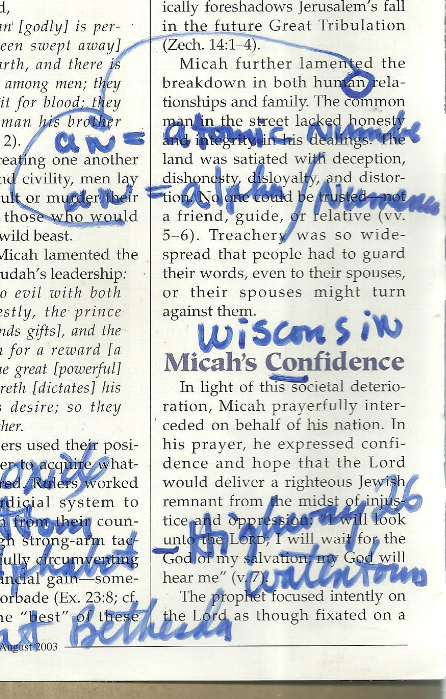 d,
an' [godly] is per-
een swept away]
arth, and there is
among men; they
it for blood; they
man his brother
2).
reating one another
nd civility, men lay
ult or murder their
those who would
wild beast.
Micah lamented the
udah's leadership:
o evil with both
estly, the prince
nds gifts], and the
n for a reward [a
e great [powerful]
reth [dictates] his
s desire; so they
her.
ers used their posi-
er to acquire what-
red. Rulers worked
dicial system to
from their coun-
gh strong-arm tac-
fully circumventing
ancial gain—some-
orbade (Ex. 23:8; cf.
he "best" of these
August 2003
ically foreshadows Jerusalem's fall
in the future Great Tribulation
(Zech. 14:1–4).
Micah further lamented the
breakdown in both human rela-
tionships and family. The common
man in the street lacked honesty
and integrity in his dealings. The
land was satiated with deception,
dishonesty, disloyalty, and distor-
tion. No one could be trusted—not
a friend, guide, or relative (vv.
5–6). Treachery was so wide-
spread that people had to guard
their words, even to their spouses,
or their spouses might turn
against them.
Micah's Confidence
In light of this societal deterio-
ration, Micah prayerfully inter-
ceded on behalf of his nation. In
his prayer, he expressed confi-
dence and hope that the Lord
would deliver a righteous Jewish
remnant from the midst of injus-
tice and oppression: "I will look
unto the LORD; I will wait for the
God of my salvation; my God will
hear me" (v. 7).
The prophet focused intently on
the Lord as though fixated on a
an = atomic numbe
an = alpha/Numer
Wisconsin
- Highway 26
Watertown
ast Bethesda